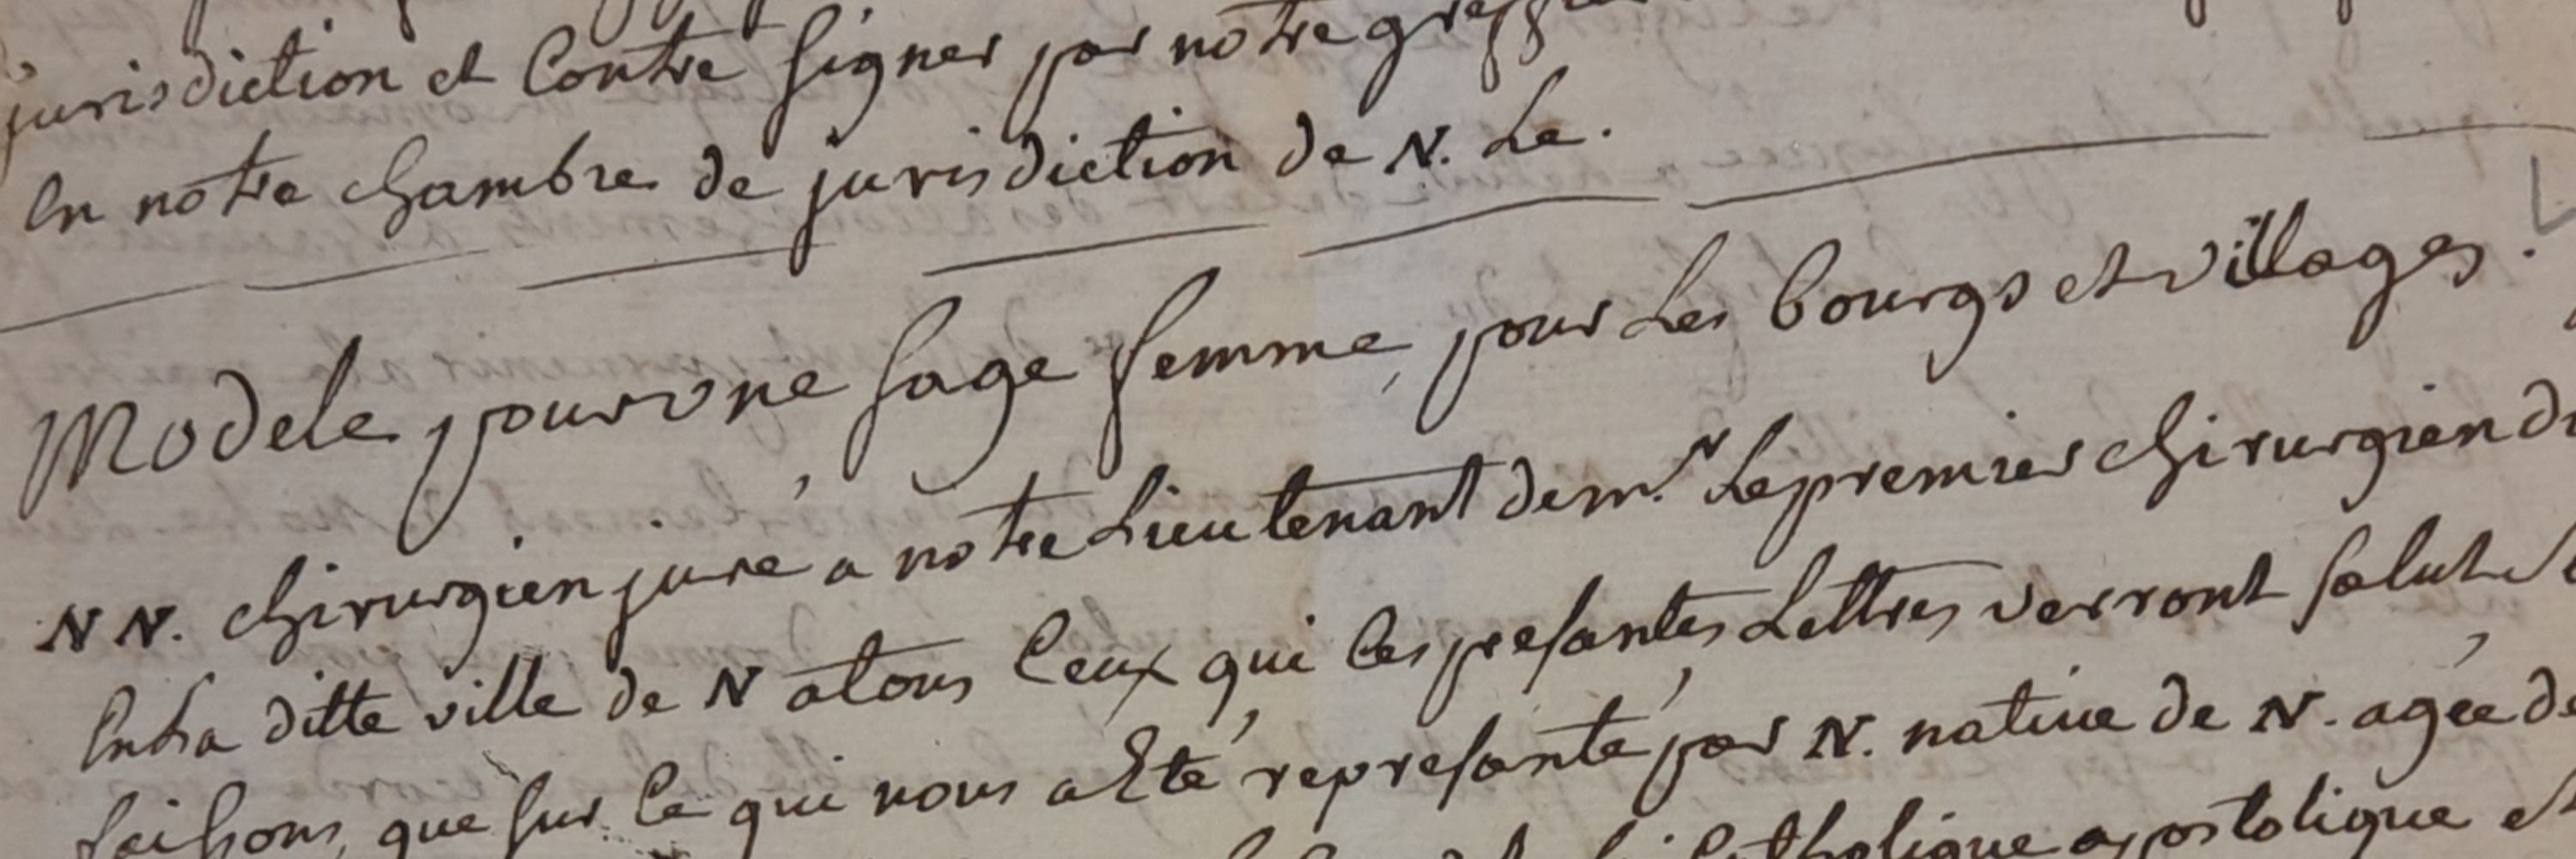 jurisdiction et Contre signer par notre greffier
En notre chambre de jurisdiction de N. Le.
Modele pour une sage femme, pour Les bourgs et villages.
N N. chirurgien juré a notre Lieutenant de m.r Le premier chirurgien du
En La ditte ville de N a tous Ceux qui Ces presantes Lettres verront salut
faisons, que sur Ce qui nous a Eté represanté par N. native de N. agée de
Catholique apostolique et